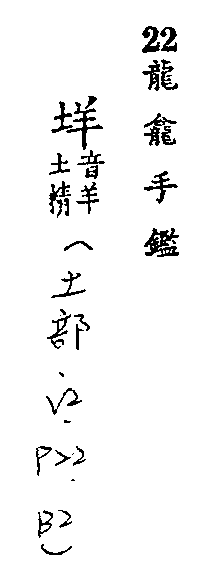 22龍龕手鑑
垟音羊土精(土部.V2.P22.B2)